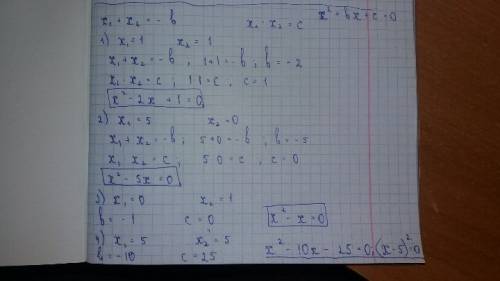 x₁ + x₂ = -b x₁ · x₂ = c x² = bx + c = 0
1) x₁ = 1 x₂ = 1
x₁ + x₂ = -b ; 1+1 = -b ; b = -2
x₁ · x₂ = c, 1·1 = c, c = 1
x² - 2x + 1 = 0,
2) x₁ = 5 x₂ = 0
x₁ + x₂ = -b ; 5+0 = -b ; b = -5
x₁ x₂ = c, 5·0 = c, c = 0
x² - 5x = 0
3) x₁ = 0 x₂ = 1
b = -1 c = 0 x² - x = 0
4) x₁ = 5 x₂ = 5
b = -10 c = 25 x² - 10x - 25 = 0, (x-5)² = 0